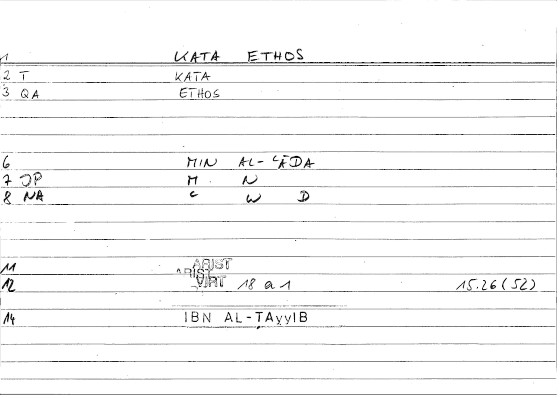 1 KATA ETHOS
2 T KATA
3 QA ETHOS
6 MIN AL-ʿĀDA
7 JP M N
8 NA ʿ W D
11 ARIST
12 ARIST VIRT 18 a 1 15.26 (52)
14 IBN AL-ṬAyyIB